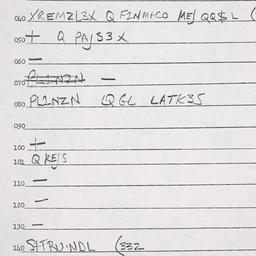 040 XREMZL3X Q F1NMACO MEJ QQ$L (
050 + Q PAJS3X
060 —
070 PL1NZN —
080 PL1NZN Q GL LATK35
090
100 +
101 Q KEJS
110 —
120 —
130 —
140 (332